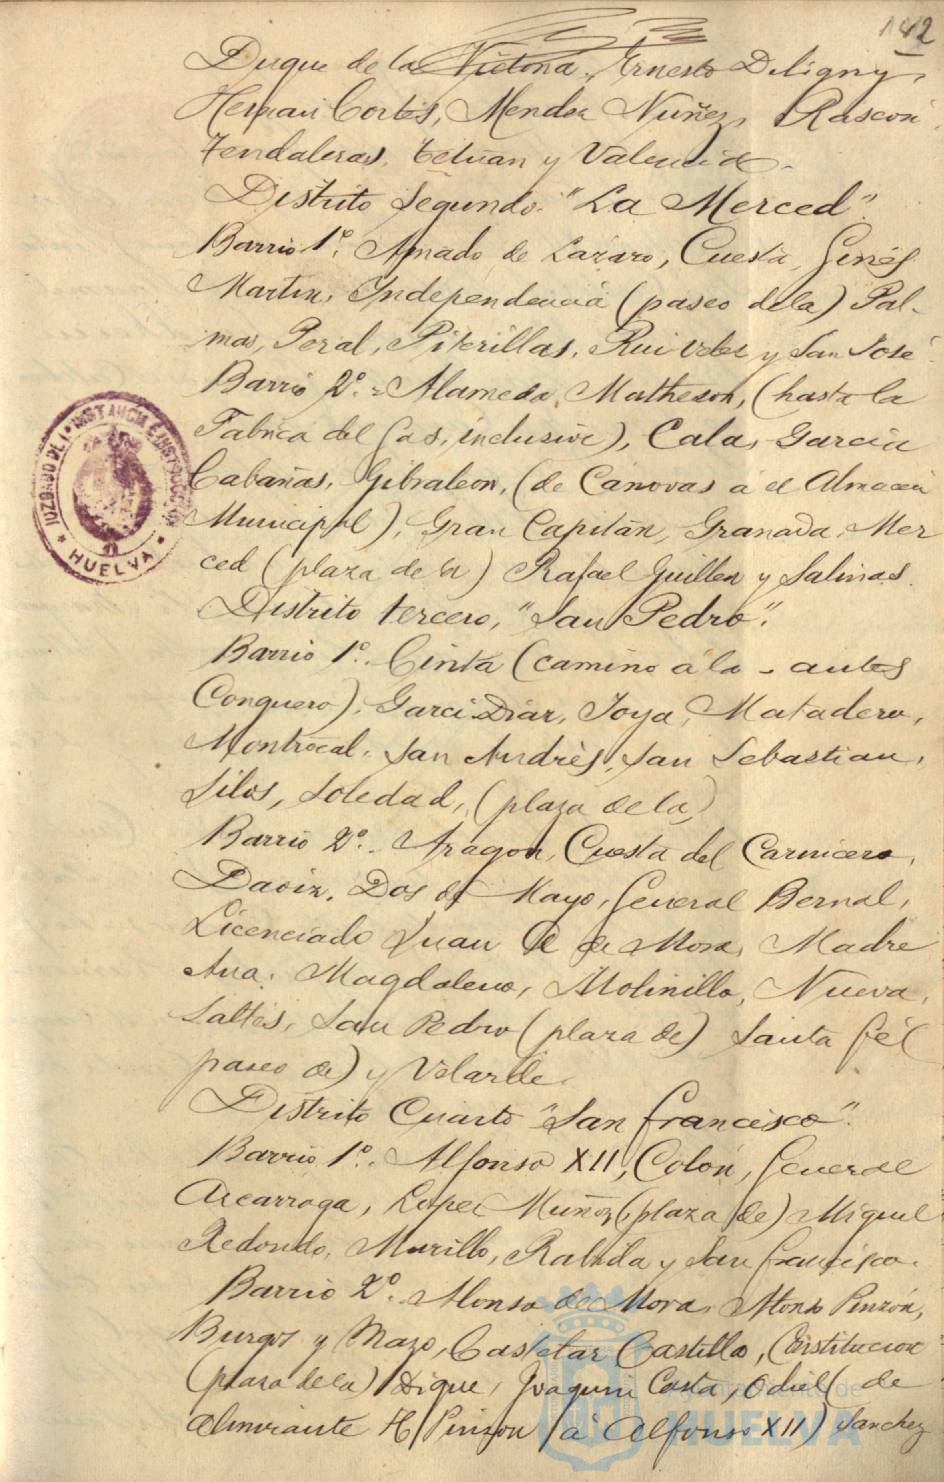 142
Duque de la Victoria, Ernesto Deligny,
Hernan Cortés, Mendez Nuñez, Rascon
Tendaleras, Tetuan y Valencia.
Distrito Segundo. "La Merced".
Barrio 1º. Amado de Lazaro, Cuesta, Ginés
Martin, Independencia (paseo dela) Pal-
mas, Peral, Piterillas, Rui Velez y San José
Barrio 2º.= Alameda Matheson, (hasta la
Fabrica del Gas, inclusive), Cala, Garcia
Cabañas, Gibraleon, (de Cánovas á el Almacen
Municipal), Gran Capitán, Granada, Mer
ced (plaza de la) Rafael Guillen y Salinas.
Distrito tercero, "San Pedro".
Barrio 1º. Cinta (camino á la - antes
Conquero), Garci-Diaz, Joya, Matadero,
Montrocal, San Andrés, San Sebastian,
Silos, Soledad, (plaza de la)
Barrio 2º. Aragon, Cuesta del Carnicero,
Daoiz, Dos de Mayo, General Bernal,
Licenciado Juan de Mora, Madre
Ana, Magdalena, Molinillo, Nueva,
Saltés, San Pedro (plaza de) Santa Fé (
paseo de) y Velarde.
Distrito Cuarto "San Francisco".
Barrio 1º. Alfonso XII, Colón, General
Azcarraga, Lopez Muñoz (plaza de) Miguel
Redondo, Murillo, Rabida y San Francisco.
Barrio 2º. Alonso de Mora, Alonso Pinzón,
Burgos y Mazo, Castelar Castillo, Constitucion
(plaza de la) Dique, Joaquin Costa, Odiel (de
Almirante H Pinzon á Alfonso XII) Sanchez
JUZGADO DE 1ª INSTANCIA E INSTRUCCION
* HUELVA *
Ayuntamiento de
HUELVA